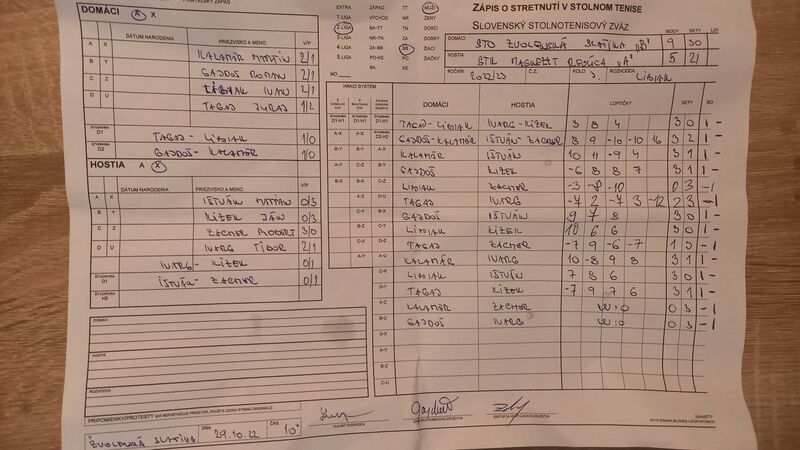 PRIATEĽSKÝ ZÁPAS
DOMÁCI A X
DÁTUM NARODENIA PRIEZVISKO A MENO V/P
A X KALAMÁR 2/1
B Y GAJDOŠ ROMAN 2/1
C Z IVAN 2/1
D U TAGAJ JURAJ 1/2
ŠTVORHRA D1 TAGAJ - LIDIAK 1/0
ŠTVORHRA D2 GAJDOŠ - KALAMÁR 1/0
HOSTIA A X
DÁTUM NARODENIA PRIEZVISKO A MENO V/P
A X IŠTVÁN 0/3
B Y KÍZEK JÁN 0/3
C Z ZACHER ROBERT 3/0
D U IVARG TIBOR 2/1
ŠTVORHRA D1 IVARG - KÍZEK 0/1
ŠTVORHRA H2 IŠTVÁN - ZACHER 0/1
DOMÁCI
HOSTIA
ROZHODCA
PRIPOMIENKY/PROTESTY (AK NEPOSTAČUJE PRIESTOR, POUŽITE ZADNÚ STRANU ORIGINÁLU)
V ZVOLENSKÁ SLATINA DŇA 29.10.22 ČAS 10°°
HLAVNÝ ROZHODCA
ZÁSTUPCA DOMÁCEHO DRUŽSTVA
ZÁSTUPCA HOSŤUJÚCEHO DRUŽSTVA
EXTRA ZÁPAD TT MUŽI
1.LIGA VÝCHOD NR ŽENY
2.LIGA BA-TT TN DORCI
3.LIGA NR-TN ZA DORKY
4.LIGA ZA-BB BB ŽIACI
5.LIGA PO-KE PO ŽIAČKY
BA KE
MO
ZÁPIS O STRETNUTÍ V STOLNOM TENISE
SLOVENSKÝ STOLNOTENISOVÝ ZVÄZ
BODY SETY
DOMÁCI STO ZVOLENSKÁ SLATINA "B" 9 30
HOSTIA STK MAGNEZIT REVÚCA "A" 5 21
ROČNÍK 2022/23 Č.Z. KOLO 3. ROZHODCA LIDIAK
HRACÍ SYSTÉM
DOMÁCI HOSTIA LOPTIČKY SETY BO
D1-H1 D1-H1 D1-H1 TAGAJ - LIDIAK IVARG - KÍZEK 3 8 4 3 0 1 -
A-X A-X D2-H2 GAJDOŠ - KALAMÁR IŠTVÁN - ZACHER 8 9 -10 -10 16 3 2 1 -
B-Y B-Y A-X KALAMÁR IŠTVÁN 10 11 -9 4 3 1 1 -
C-Z B-Y GAJDOŠ KÍZEK -6 8 8 7 3 1 1 -
B-X B-X C-Z LIDIAK ZACHER -3 -10 0 3 - 1
A-Z D-U TAGAJ IVARG -7 2 -7 3 -12 2 3 - 1
GAJDOŠ IŠTVÁN 9 7 8 3 0 1 -
LIDIAK KÍZEK 10 6 6 3 0 1 -
TAGAJ ZACHER -7 9 -6 -7 1 3 - 1
KALAMÁR IVARG 10 -8 9 8 3 1 1 -
C-X LIDIAK IŠTVÁN 7 8 6 3 0 1 -
D-Y TAGAJ KÍZEK -7 9 7 6 3 1 1 -
A-Z KALAMÁR ZACHER w:o 0 3 - 1
B-U GAJDOŠ IVARG w:o 0 3 - 1
D-X
A-Y
B-Z
C-U